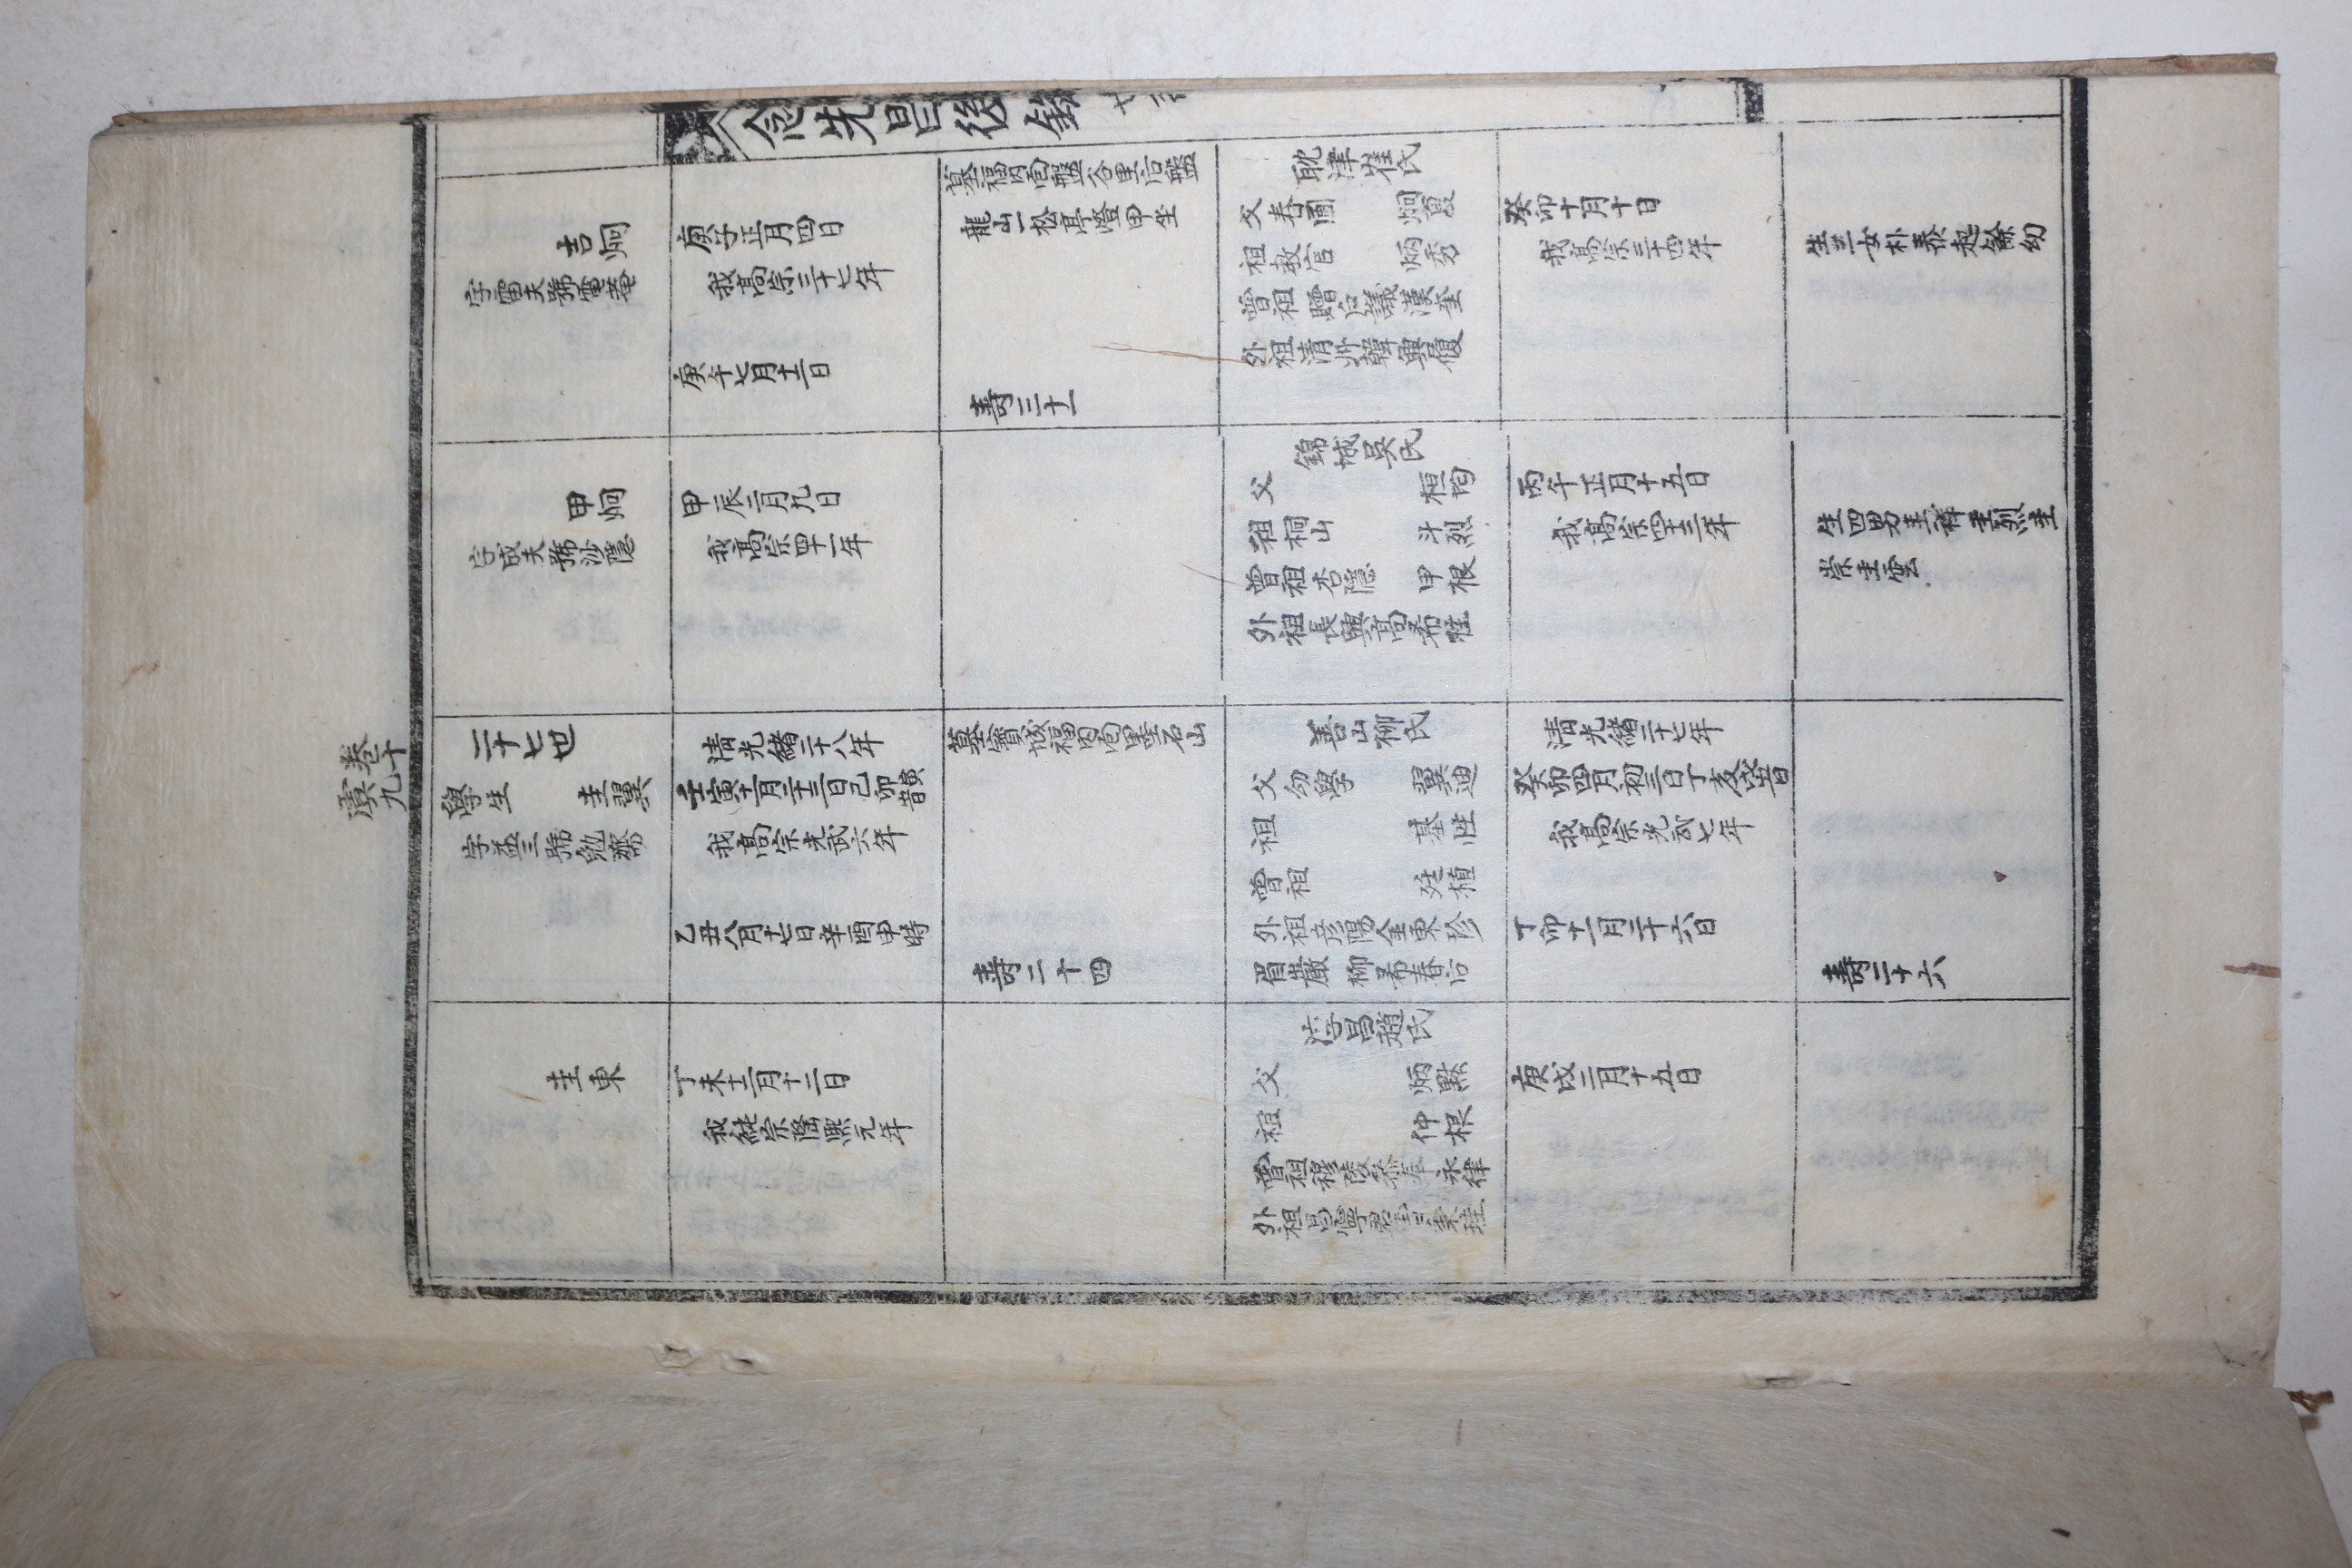 念先昌後錄
卷十
虞九
吉炯
字雷夫號電菴
庚子正月四日
我高宗三十七年
庚午七月十二日
墓福內面盤谷里后盤
龍山一松亭嶝甲坐
壽三十一
耽津崔氏
父春圃 炯夏
祖教官 炳秀
曾祖贈
外祖清州韓興履
癸卯十月十日
我高宗三十四年
生二女朴泰起餘幼
甲炯
字成夫號沙隱
甲辰二月九日
我高宗四十一年
錦城吳氏
父 桓均
祖桐山 斗烈
曾祖杏隱 甲根
外祖長興高
丙午正月十五日
我高宗四十三年
生四男圭祥圭烈圭
崇圭雲
二十七世
學生 圭翼
字益三號勉齋
清光緒二十八年
壬寅十二月二十三日己卯
我高宗光武六年
乙丑八月十七日辛酉申時
墓寶城福內面
壽二十四
善山柳氏
父幼學 翼迪
祖 基性
曾祖 廷植
外祖彦陽金東珍
眉巖柳希春后
清光緒二十七年
癸卯四月初三日丁亥戌時
我高宗光武七年
丁卯十一月二十六日
壽二十六
圭東
丁未十二月十二日
我純宗隆熙元年
淳昌趙氏
父 炳默
祖 仲根
曾祖穆陵參奉永律
外祖昌寧
庚戌二月十五日